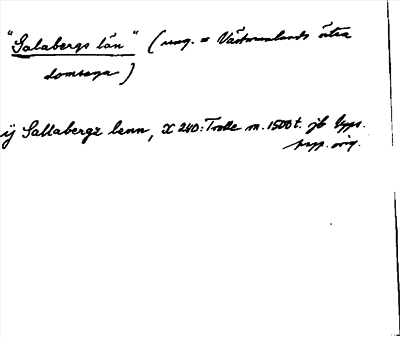 "Salabergs län" (ung. = Västmanlands östra
domsaga)
ij Sallabergz lenn, X 240: Trolle m. 1500 t. jb Upps.
papp. orig.